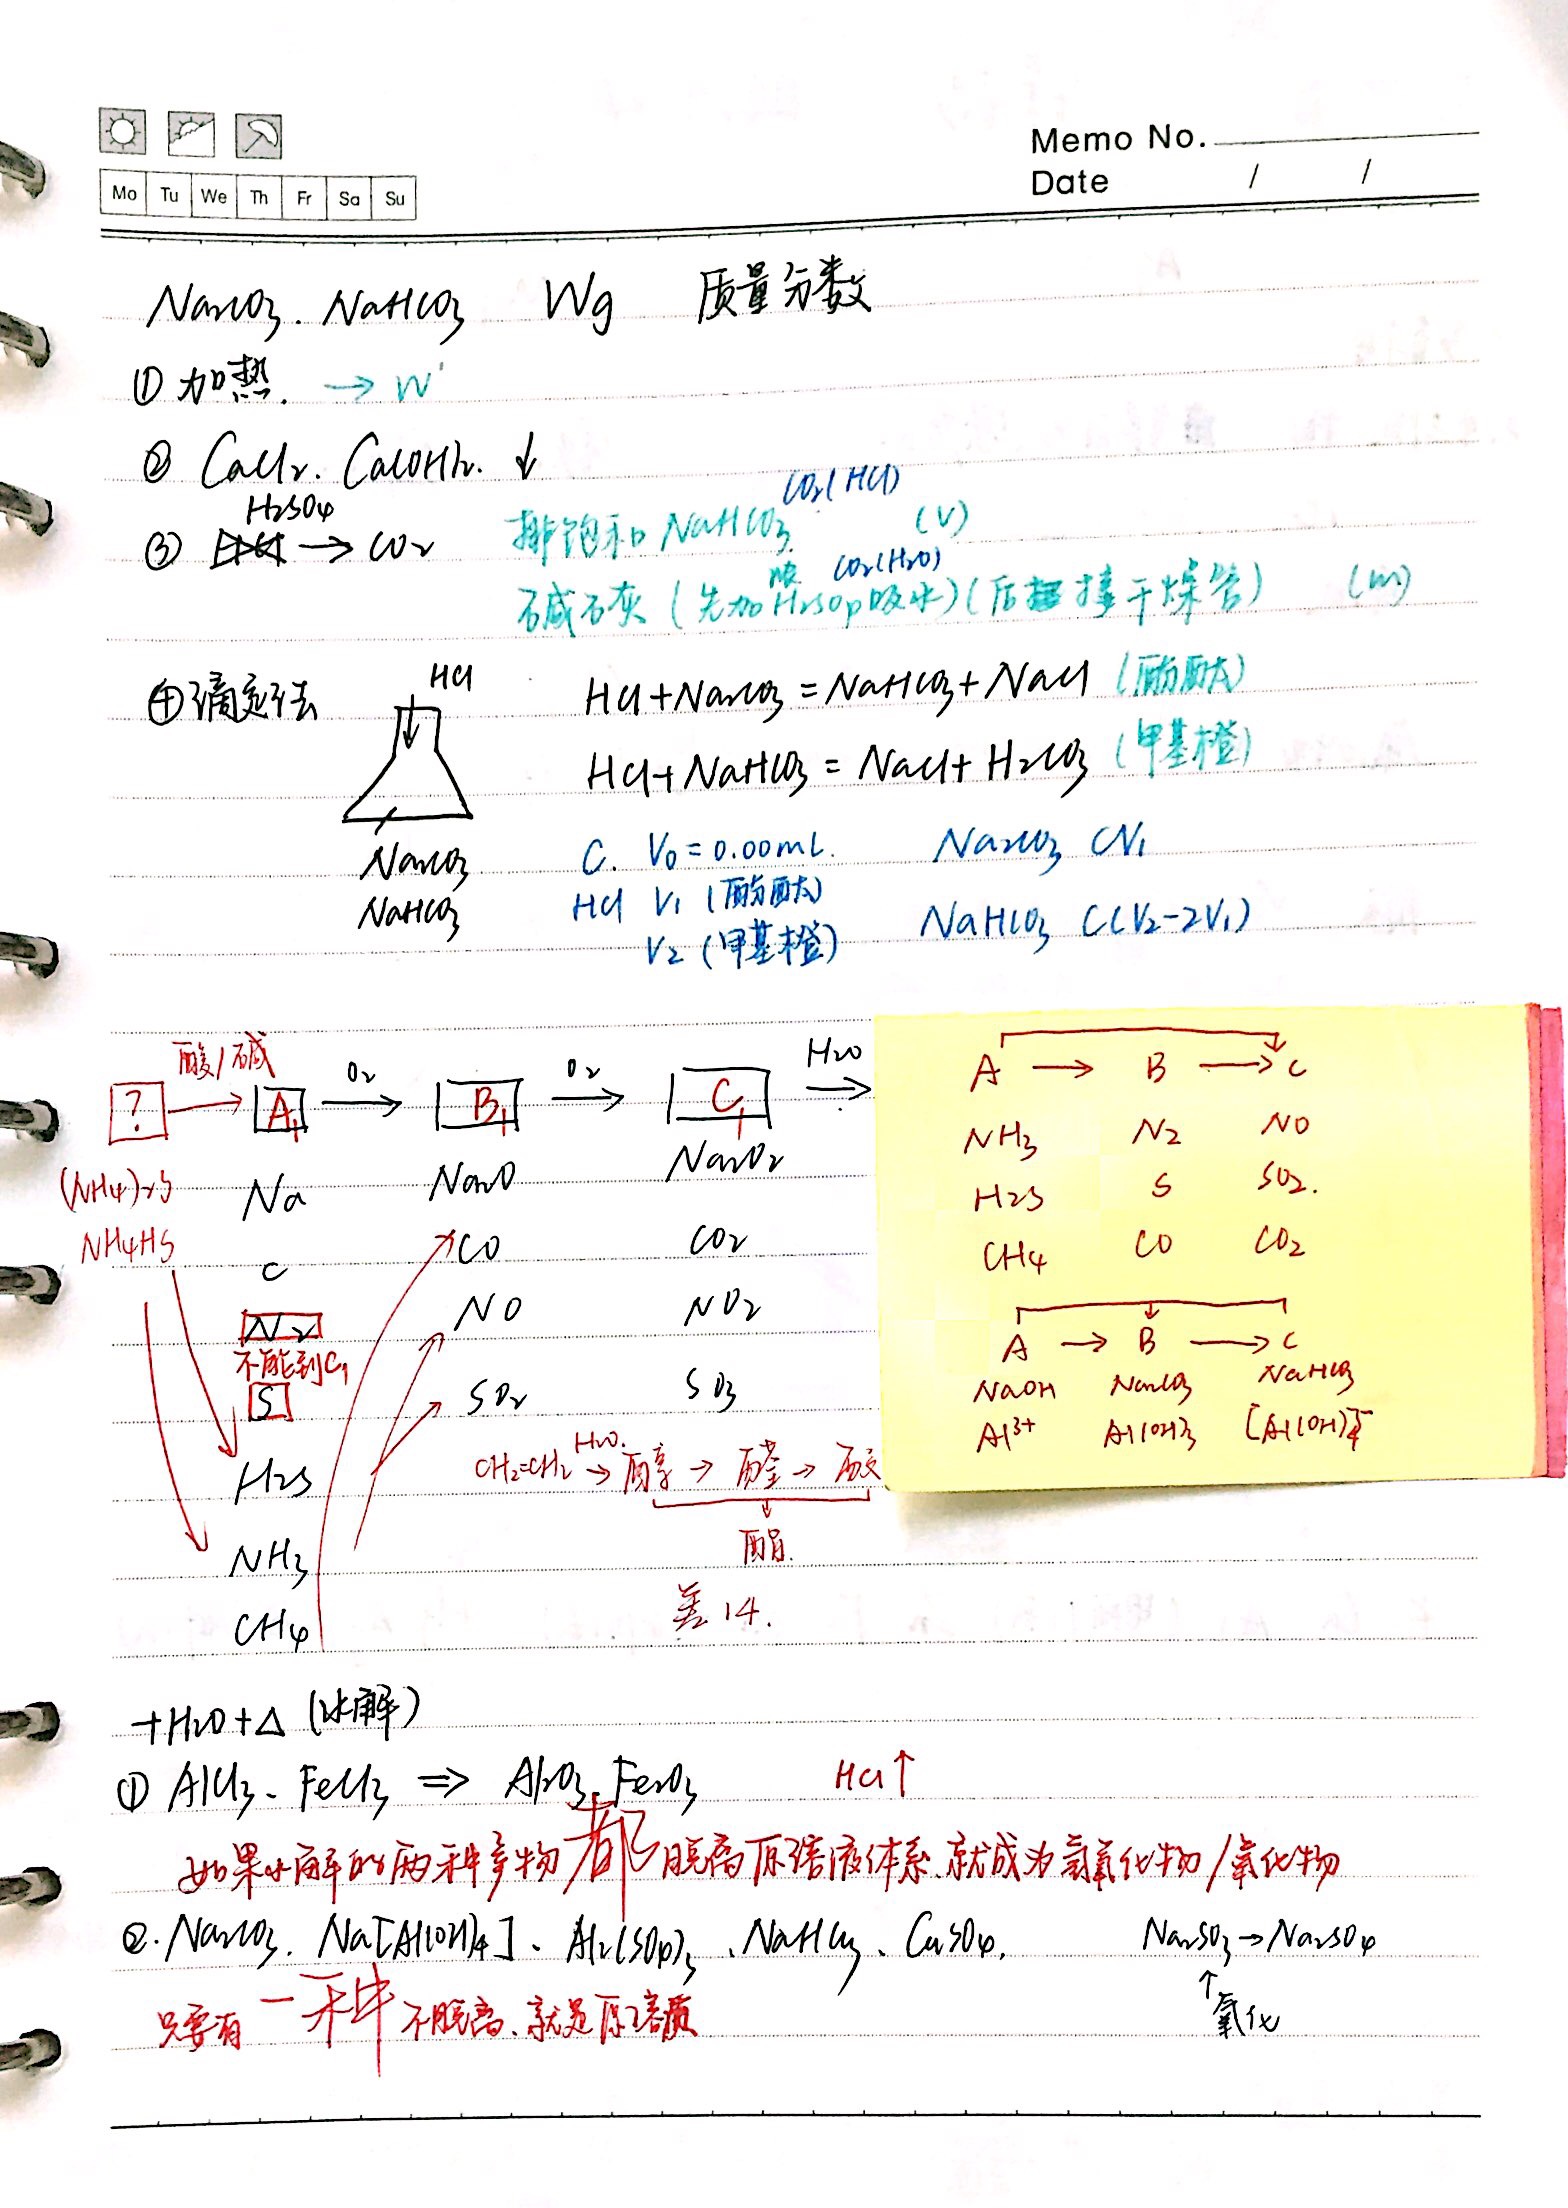 Memo No.
Date / /
Mo Tu We Th Fr Sa Su
Na₂CO₃. NaHCO₃ Wg 质量分数
① 加热. → W'
② CaCl₂. Ca(OH)₂. ↓
H₂SO₄
③ → CO₂ 排饱和NaHCO₃ CO₂(HCl) (V)
碱石灰(先加浓H₂SO₄吸水)(后接干燥管) CO₂(H₂O) (m)
④滴定法 HCl HCl+Na₂CO₃=NaHCO₃+NaCl (酚酞)
HCl+NaHCO₃=NaCl+H₂CO₃ (甲基橙)
Na₂CO₃
NaHCO₃
C. V₀=0.00mL. Na₂CO₃ CV₁
HCl V₁ (酚酞) NaHCO₃ C(V₂-2V₁)
V₂ (甲基橙)
酸/碱 O₂ O₂ H₂O
? → A₁ → B₁ → C₁ →
(NH₄)₂S Na Na₂O Na₂O₂
NH₄HS C CO CO₂
N₂ NO NO₂
不能到C₁
S SO₂ SO₃
H₂S
NH₃
CH₄
H₂O.
CH₂=CH₂ → 醇 → 醛 → 酸
↓
酯.
差14.
A → B → C
NH₃ N₂ NO
H₂S S SO₂.
CH₄ CO CO₂
A → B → C
NaOH Na₂CO₃ NaHCO₃
Al³⁺ Al(OH)₃ [Al(OH)₄]⁻
+H₂O+△ (水解)
① AlCl₃、FeCl₃ ⇒ Al₂O₃、Fe₂O₃ HCl↑
如果水解的两种产物都脱离原溶液体系、就成为氢氧化物/氧化物
②. Na₂CO₃. Na[Al(OH)₄]、Al₂(SO₄)₃、NaHCO₃、CuSO₄. Na₂SO₃→Na₂SO₄
↑
氧化
只要有一种不脱离、就是原溶质